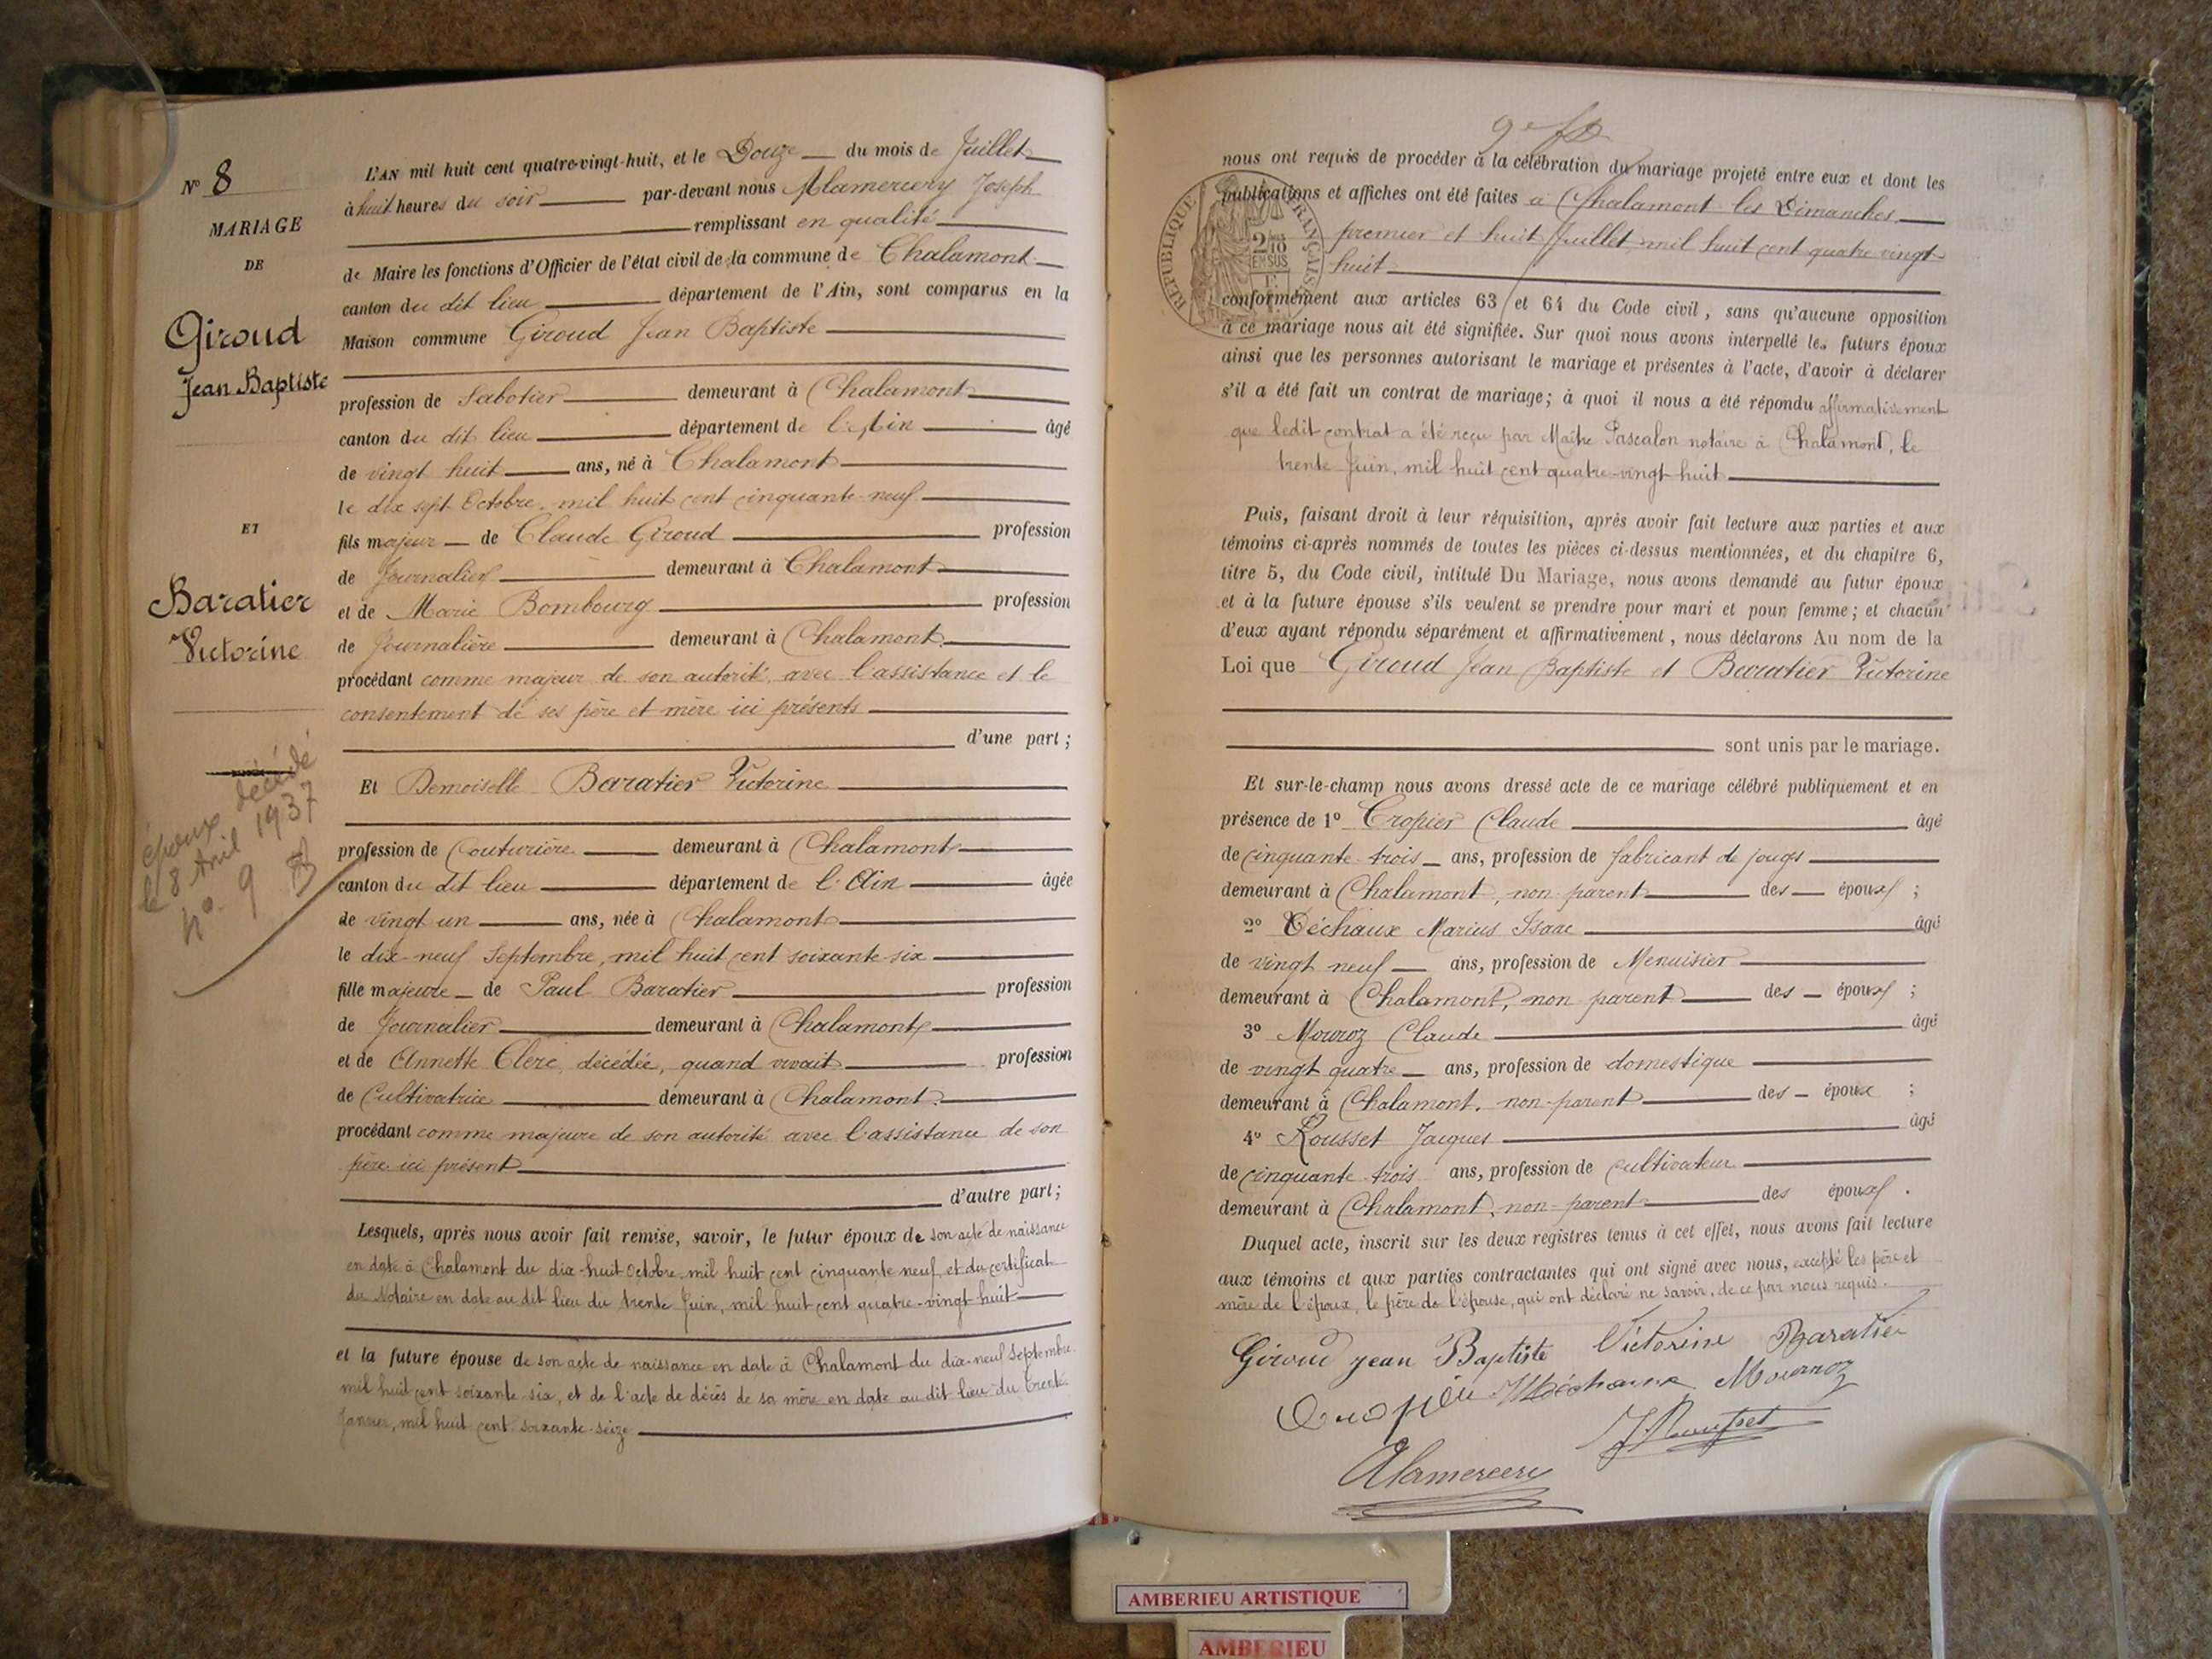 N° 8
MARIAGE
DE
Giroud
Jean Baptiste
ET
Baratier
Victorine
époux décédé
le 8 Avril 1937
n° 9
L'AN mil huit cent quatre-vingt-huit, et le Douze du mois de Juillet
à huit heures du soir par-devant nous Alamercery Joseph
remplissant en qualité
de Maire les fonctions d'Officier de l'état civil de la commune de Chalamont
canton du dit lieu département de l'Ain, sont comparus en la
Maison commune Giroud Jean Baptiste
profession de Sabotier demeurant à Chalamont
canton du dit lieu département de l'Ain âgé
de vingt huit ans, né à Chalamont
le dix sept Octobre, mil huit cent cinquante-neuf
fils majeur de Claude Giroud profession
de Journalier demeurant à Chalamont
et de Marie Bombourg profession
de Journalière demeurant à Chalamont
procédant comme majeur de son autorité, avec l'assistance et le
consentement de ses père et mère ici présents
d'une part;
Et Demoiselle Baratier Victorine
profession de Couturière demeurant à Chalamont
canton du dit lieu département de l'Ain âgée
de vingt un ans, née à Chalamont
le dix-neuf Septembre, mil huit cent soixante-six
fille majeure de Paul Baratier profession
de Journalier demeurant à Chalamont
et de Annette Clerc, décédée, quand vivait profession
de Cultivatrice demeurant à Chalamont
procédant comme majeure de son autorité avec l'assistance de son
père ici présent
d'autre part;
Lesquels, après nous avoir fait remise, savoir, le futur époux de son acte de naissance
en date à Chalamont du dix-huit Octobre mil huit cent cinquante neuf, et du certificat
du Notaire en date au dit lieu du trente Juin, mil huit cent quatre-vingt huit
et la future épouse de son acte de naissance en date à Chalamont du dix-neuf Septembre
mil huit cent soixante-six, et de l'acte de décès de sa mère en date au dit lieu du trente
Janvier, mil huit cent soixante-seize
9e
nous ont requis de procéder à la célébration du mariage projeté entre eux et dont les
publications et affiches ont été faites à Chalamont les Dimanches
premier et huit Juillet mil huit cent quatre vingt
huit
RÉPUBLIQUE FRANÇAISE
2/10
EN SUS
conformément aux articles 63 et 64 du Code civil, sans qu'aucune opposition
à ce mariage nous ait été signifiée. Sur quoi nous avons interpellé les futurs époux
ainsi que les personnes autorisant le mariage et présentes à l'acte, d'avoir à déclarer
s'il a été fait un contrat de mariage; à quoi il nous a été répondu affirmativement
que ledit contrat a été reçu par Maître Pascalon notaire à Chalamont, le
trente Juin, mil huit cent quatre-vingt huit
Puis, faisant droit à leur réquisition, après avoir fait lecture aux parties et aux
témoins ci-après nommés de toutes les pièces ci-dessus mentionnées, et du chapitre 6,
titre 5, du Code civil, intitulé Du Mariage, nous avons demandé au futur époux
et à la future épouse s'ils veulent se prendre pour mari et pour femme; et chacun
d'eux ayant répondu séparément et affirmativement, nous déclarons Au nom de la
Loi que Giroud Jean Baptiste et Baratier Victorine
sont unis par le mariage.
Et sur-le-champ nous avons dressé acte de ce mariage célébré publiquement et en
présence de 1° Cropier Claude âgé
de cinquante-trois ans, profession de fabricant de jougs
demeurant à Chalamont, non parent des époux;
2° Déchaux Marius Isaac âgé
de vingt neuf ans, profession de Menuisier
demeurant à Chalamont, non parent des époux;
3° Mouroz Claude âgé
de vingt quatre ans, profession de domestique
demeurant à Chalamont, non-parent des époux;
4° Rousset Jacques âgé
de cinquante-trois ans, profession de cultivateur
demeurant à Chalamont, non-parent des époux.
Duquel acte, inscrit sur les deux registres tenus à cet effet, nous avons fait lecture
aux témoins et aux parties contractantes qui ont signé avec nous, excepté les père et
mère de l'époux, le père de l'épouse, qui ont déclaré ne savoir, de ce par nous requis.
Giroud jean Baptiste Victorine Baratier
Cropier MDéchaux Mournoz
J Rousset
Alamercery
AMBERIEU ARTISTIQUE
AMBERIEU